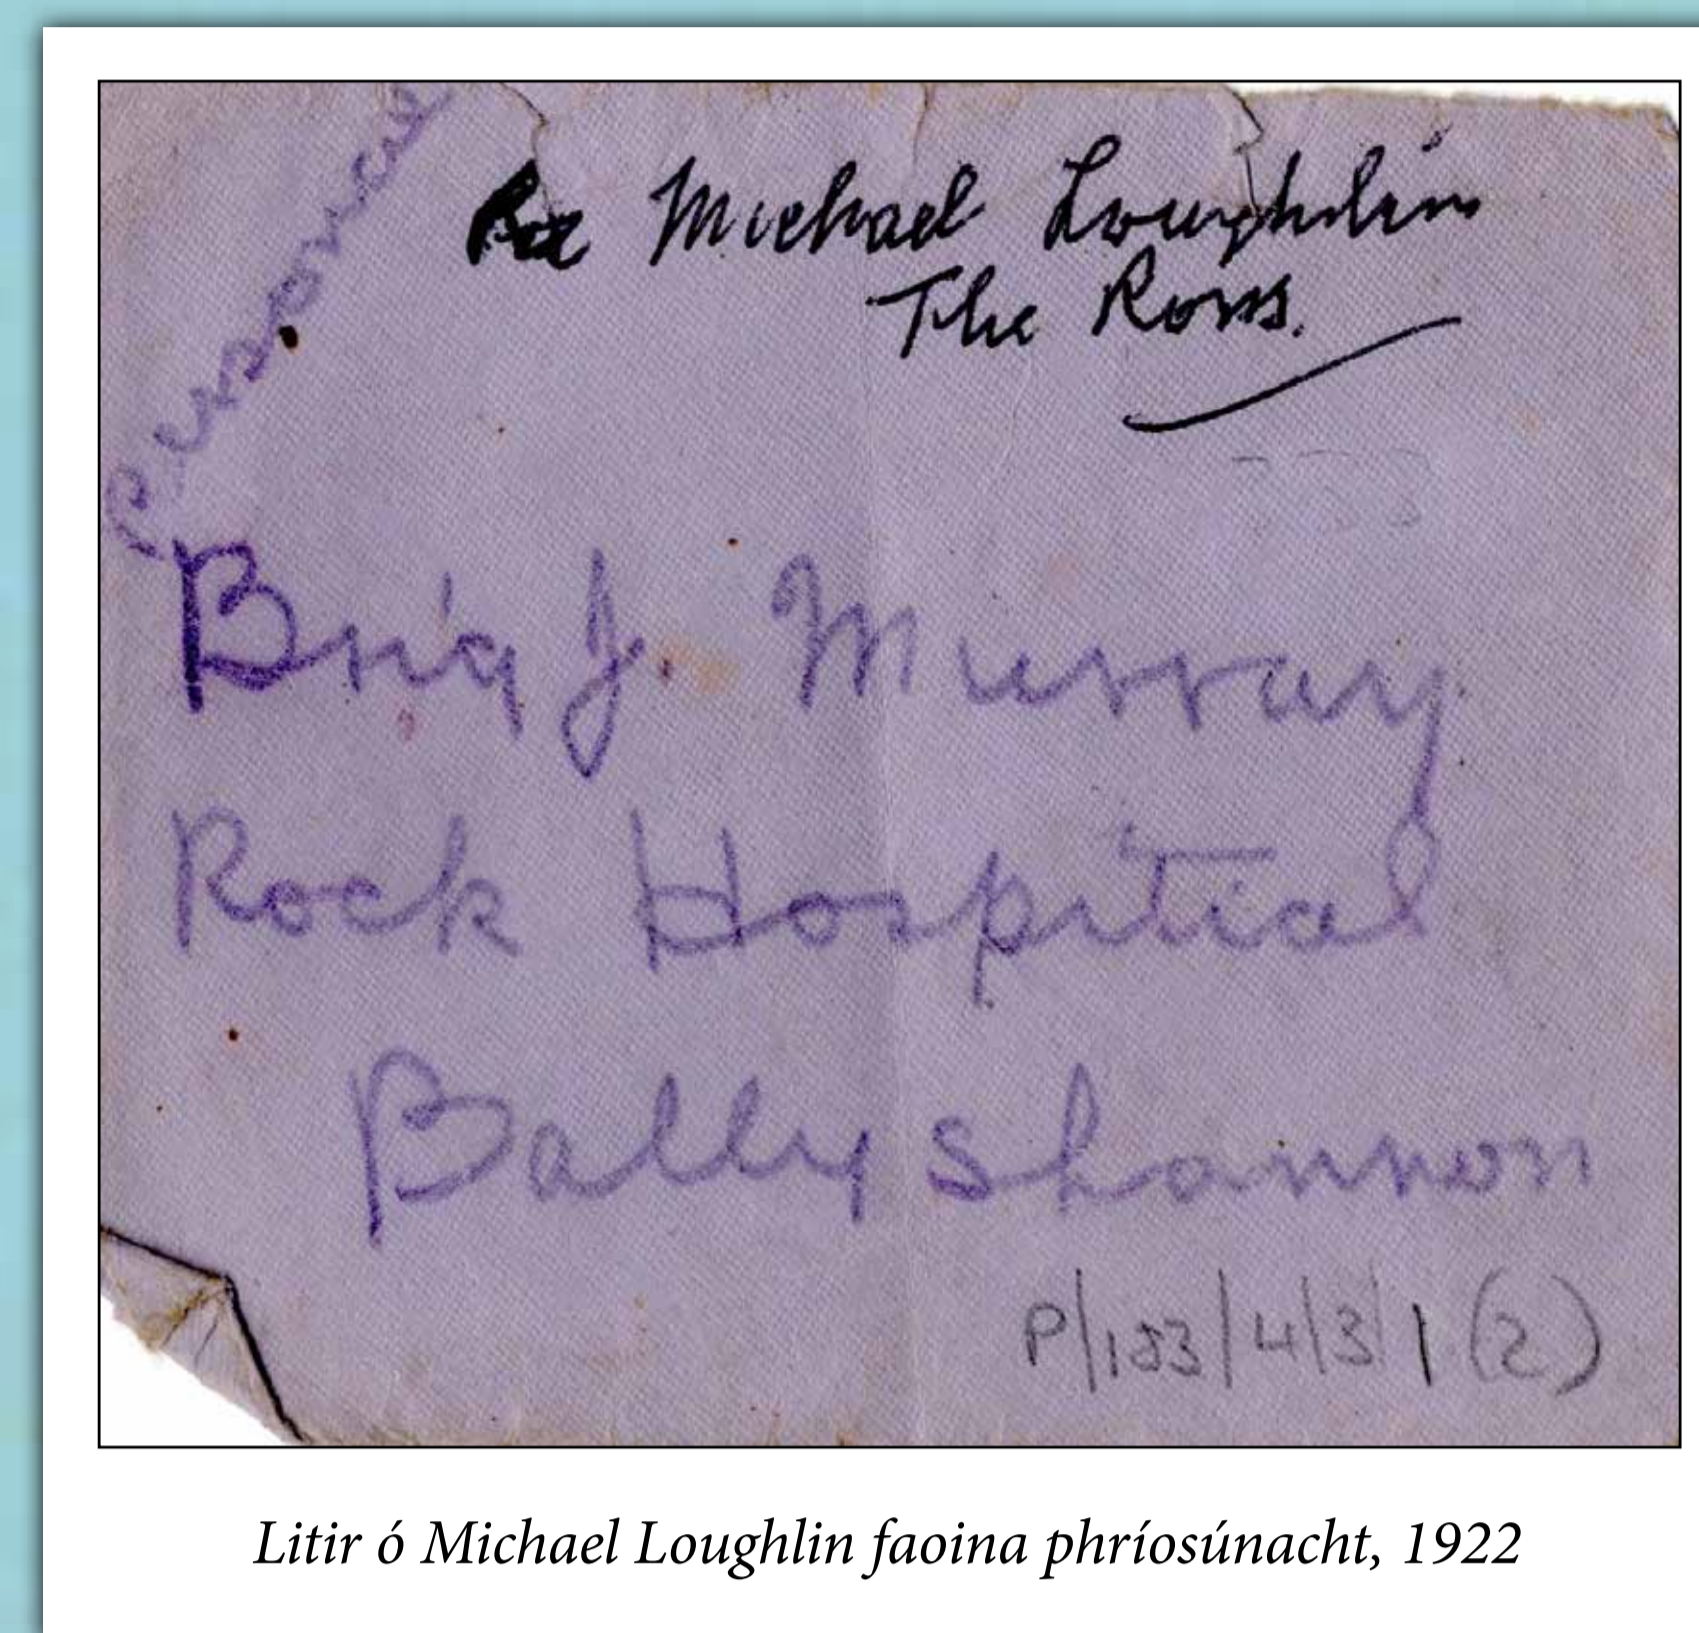 Personal
Re Michael Loughlin
The Ross.
Brig J. Murray
Rock Hospital
Ballyshannon
P/153/4/3/1(2)
Litir ó Michael Loughlin faoina phríosúnacht, 1922